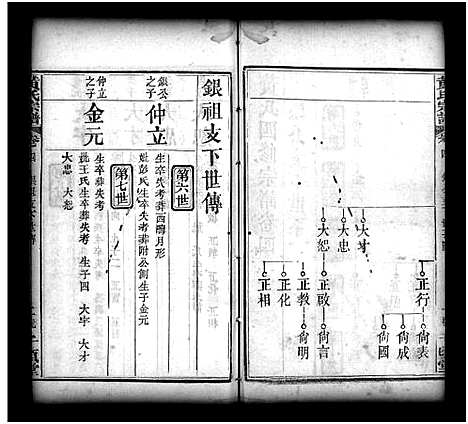 黃氏宗譜
大才
大忠
大恕
正行
正啟
正教
正化
正相
尙表
尙成
尙國
尙言
尙明
銀祖支下世傳
第六世
銀公之子
仲立
生卒失考葬酉時月形
妣彭氏生卒失考葬附公側生子金元
第七世
仲立之子
金元
生卒葬失考
妣王氏生卒葬失考 生子四 大字 大才
大忠 大恕
黃氏宗譜
卷四